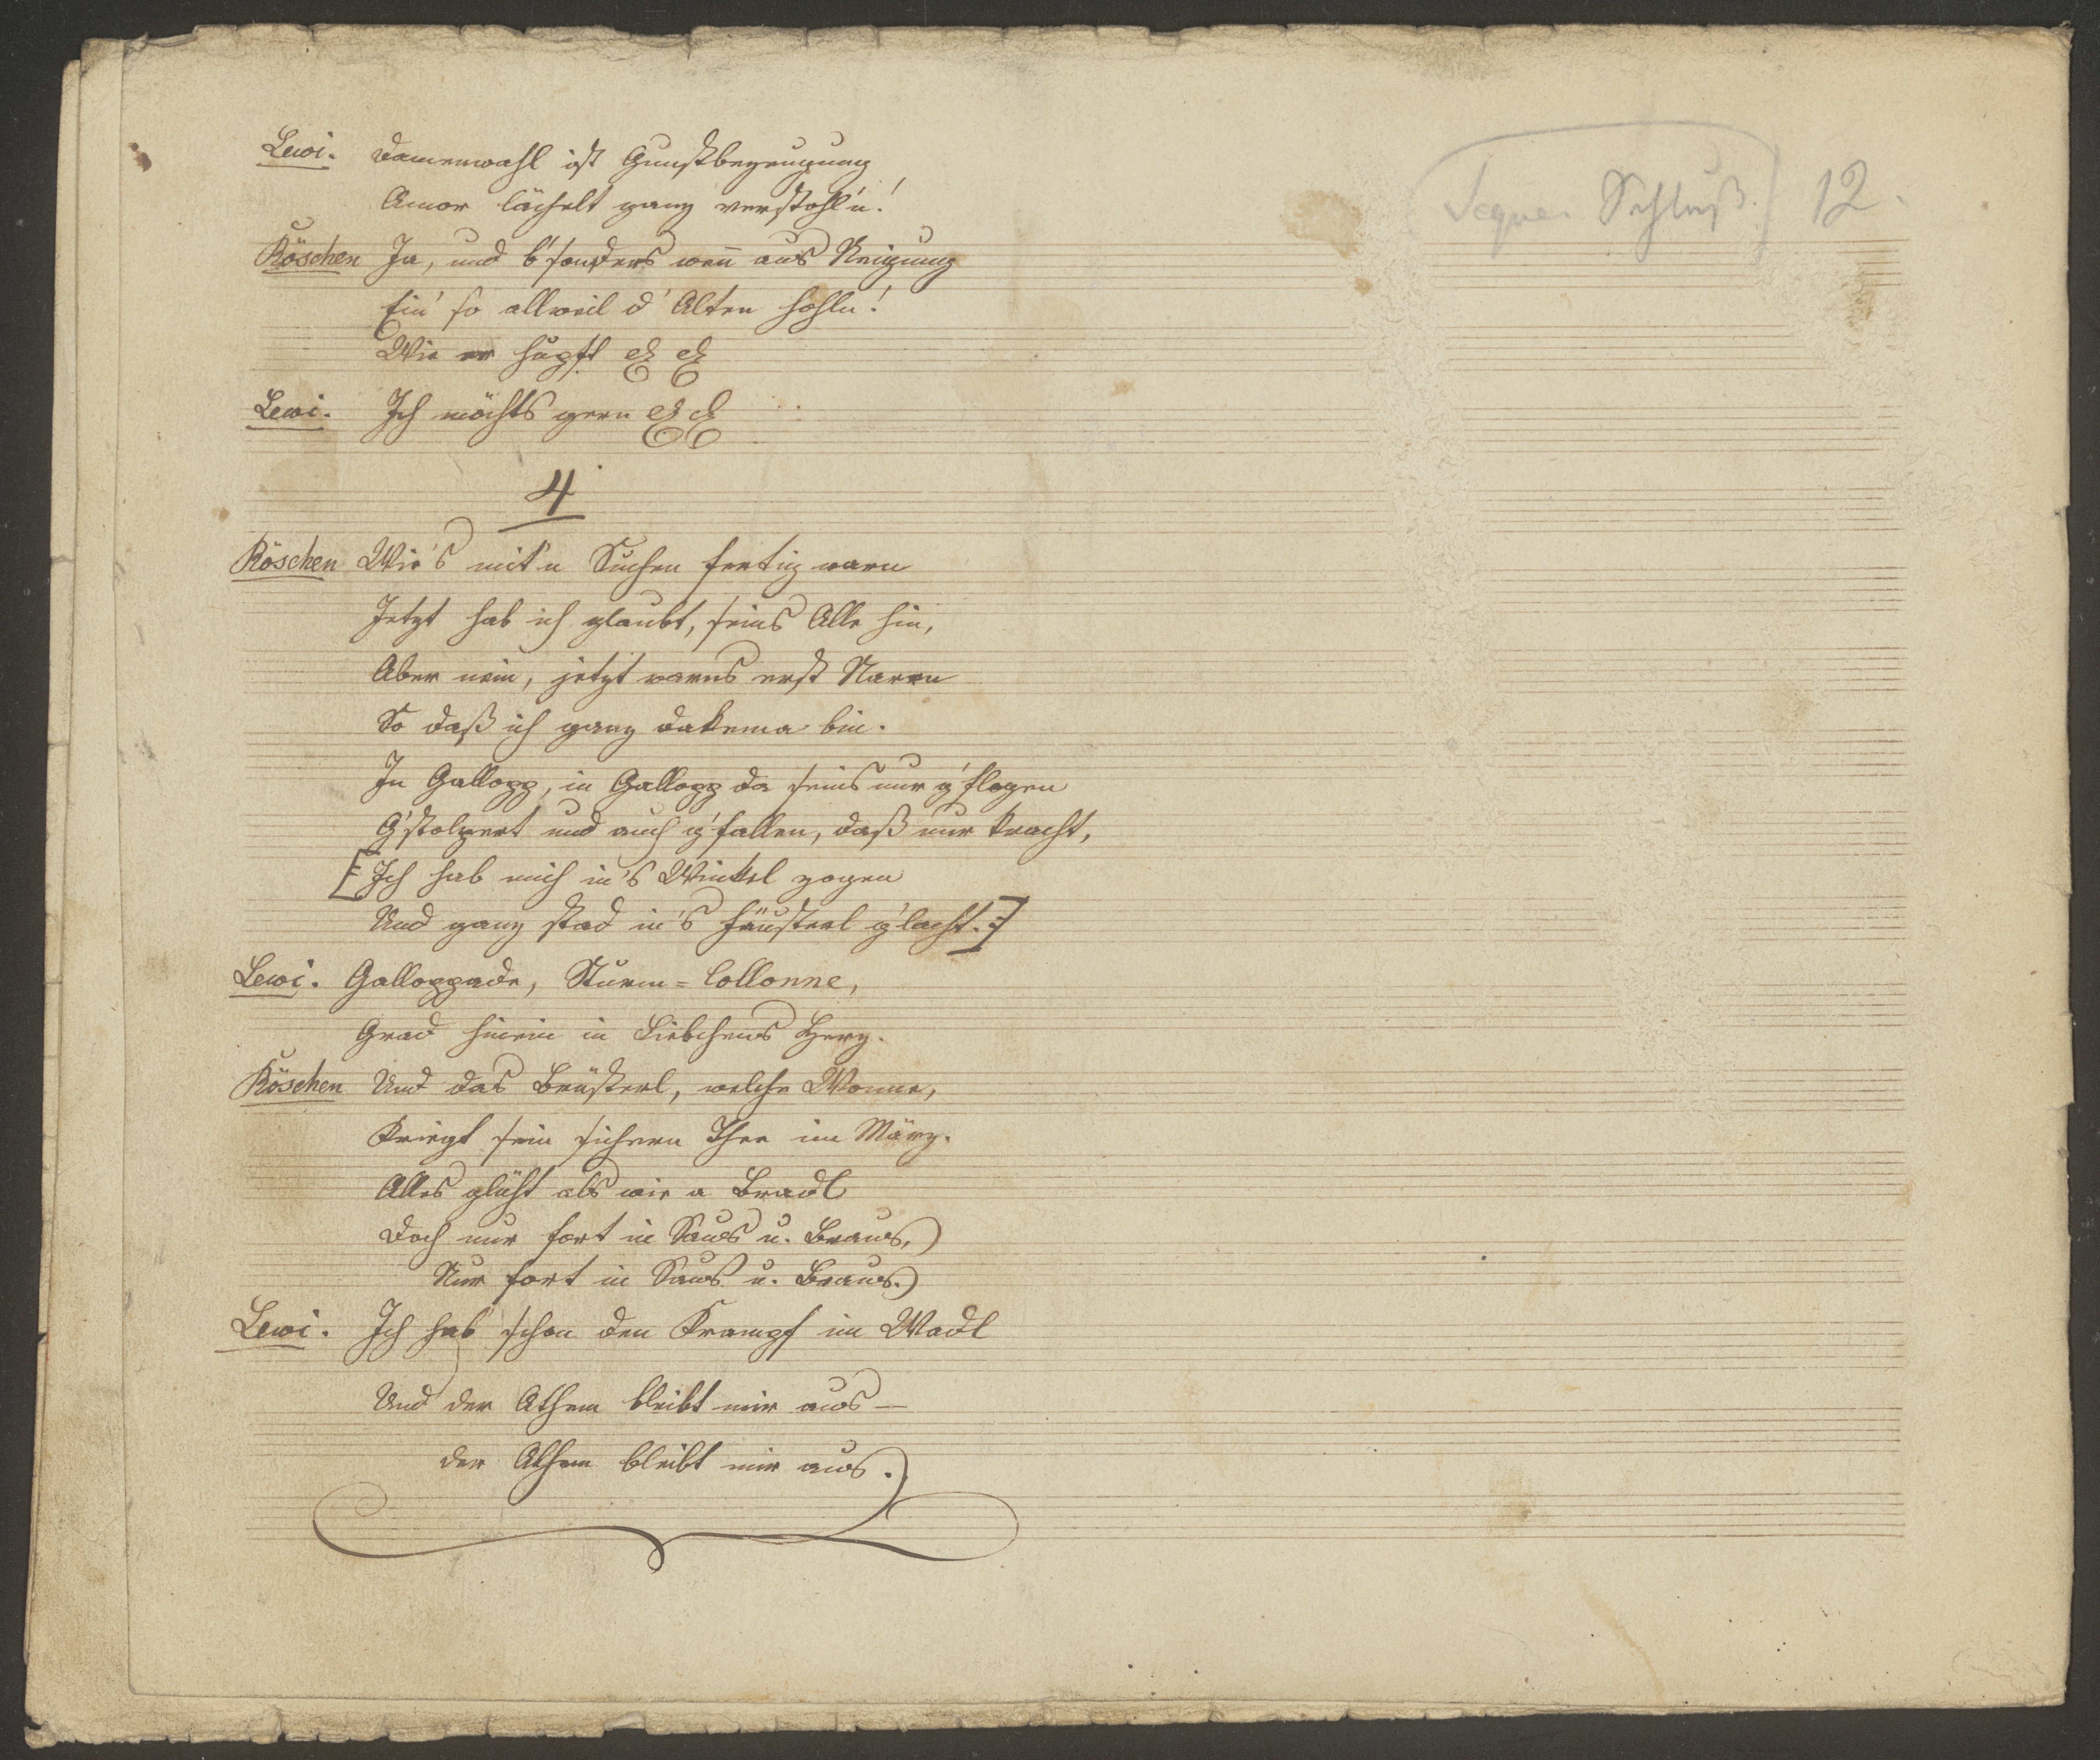 Segue. Schluß. 12.
Lewi. Damenwahl ist Gunstbezeugung
Amor lächelt ganz verstohl'n!
Röschen Ja, und b'sonders wen̄ aus Neigung
Ein' so allweil d' Alten hohln!
Wie er hupft etc etc
Lewi. Ich möchts gern etc etc
4
Röschen Wie's mit'n Suchen fertig warn
Jetzt hab ich glaubt, seins Alle hin,
Aber nein, jetzt warns erst Narrn
So daß ich ganz dakema bin.
In Gallopp, in Gallopp da seins nur g'flogen
G'stolpert und auch g'fallen, daß nur kracht,
[: Ich hab mich in's Winkel zogen
Und ganz stad in's Fäusterl g'lacht. :]
Lewi. Galloppade, Sturm=Collonne,
Grad hinein in Liebchens Herz.
Röschen Und das Brüsterl, welche Wonne,
Kriegt sein sichern Thee im März.
Alles glüht als wie a Bradl
Doch nur fort in Saus u. Braus,
Nur fort in Saus u. Braus.
Lewi. Ich hab schon den Krampf im Wadl
Und der Athem bleibt mir aus —
der Athem bleibt mir aus.